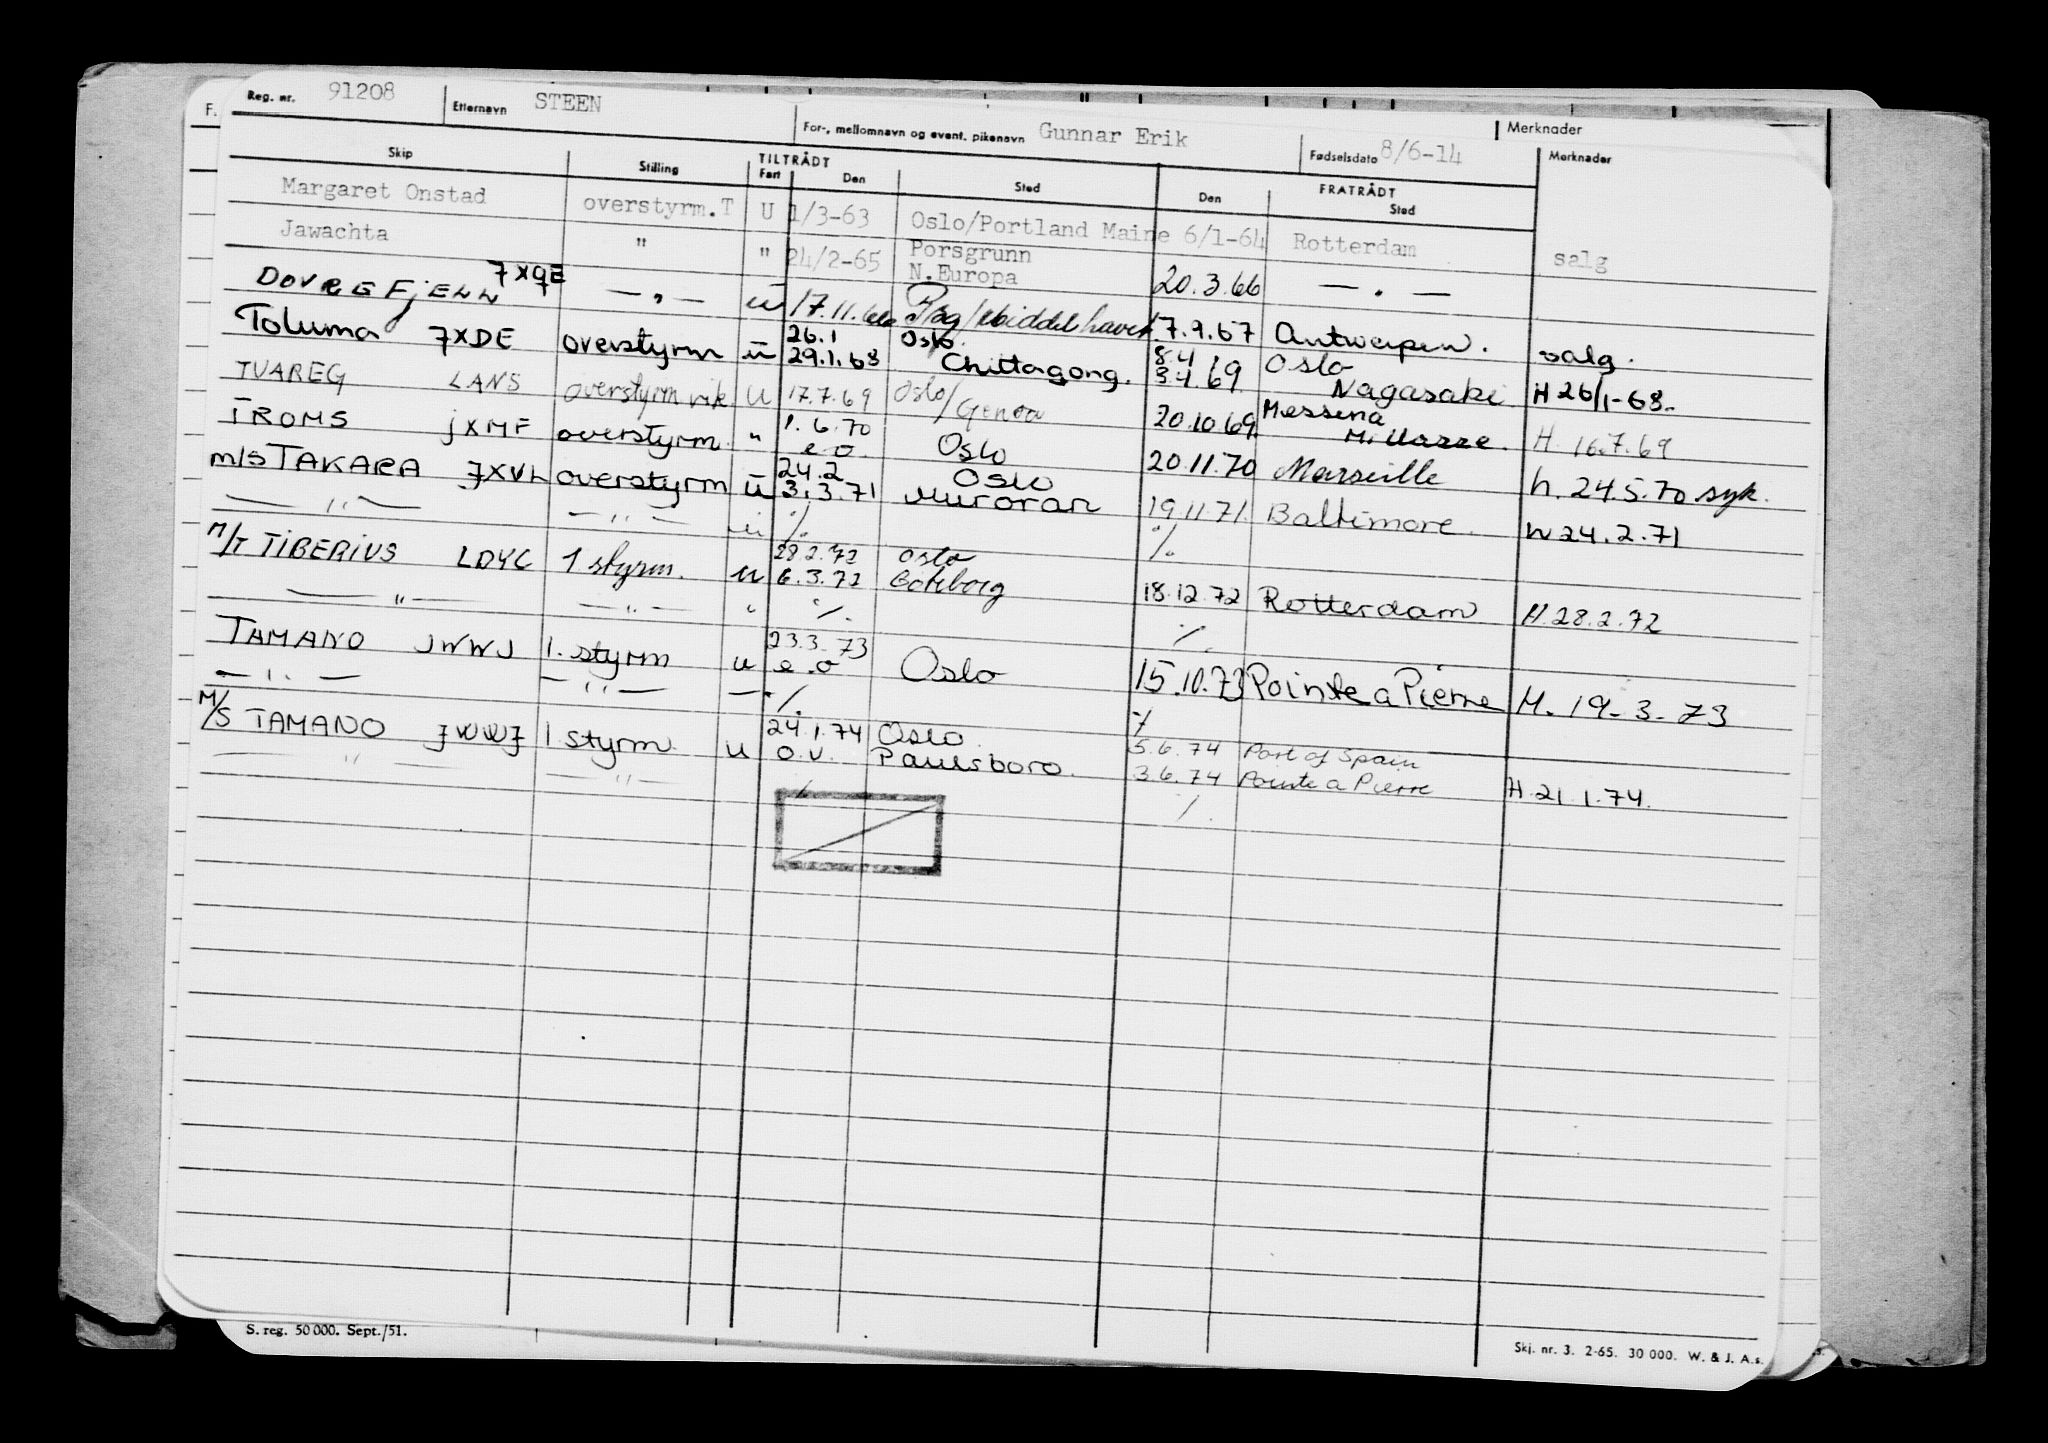 F.
Reg. nr. 91208 Etternavn STEEN For-, mellomnavn og event. pikenavn Gunnar Erik Fødselsdato 8/6-14 Merknader
Skip Stilling TILTRÅDT FRATRÅDT Merknader
Fart Den Sted Den Sted
Margaret Onstad overstyrm.T U 1/3-63 Oslo/Portland Maine 6/1-64 Rotterdam salg
Jawachta " " 24/2-65 Porsgrunn
N.Europa 20.3.66 — " —
DOVREFJELL 7XQE — " — u 17.11.66 17.9.67 Antwerpen. salg.
Toluma JXDE overstyrm u 26.1 Oslo. 8.4 Oslo
29.1.68 Chittagong. 3.4.69 Nagasaki H 26/1-68.
TUAREG LANS overstyrm vik. u 17.7.69 Oslo/Genoa 20.10.69. Messina
Millazze. H. 16.7.69
TROMS JXMF overstyrm. " 1.6.70
e.o. Oslo 20.11.70 Marseille h. 24.5.70 syk.
m/s TAKARA JXVL overstyrm u 24.2 Oslo
3.3.71 Muroran 19.11.71. Baltimore. h 24.2.71
— " — — " — u %. %.
M/T TIBERIUS LDYC 1 styrm. u 28.2.72 Oslo
6.3.72 Göteborg 18.12.72 Rotterdam H. 28.2.72
— " — — " — " %. %.
TAMANO JWWJ 1. styrm u 23.3.73
e.o Oslo 15.10.73 Pointe a Pierre H. 19-3-73
— " — — " — — %. %
M/S TAMANO JWWJ 1 styrm. u 24.1.74 Oslo. 5.6.74 Port of Spain
o.v. Paulsboro. 3.6.74 Pointe a Pierre H. 21.1.74.
— " — — " — % %.
S. reg. 50 000. Sept./51.
Skj. nr. 3. 2-65. 30 000. W. & J. A.s.